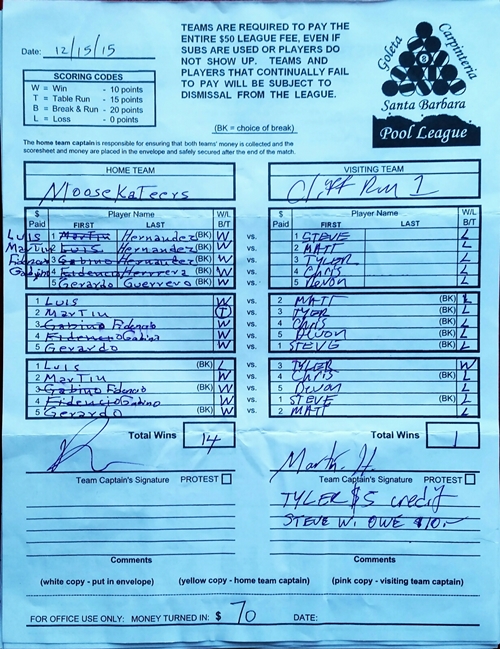 TEAMS ARE REQUIRED TO PAY THE
ENTIRE $50 LEAGUE FEE, EVEN IF
SUBS ARE USED OR PLAYERS DO
NOT SHOW UP. TEAMS AND
PLAYERS THAT CONTINUALLY FAIL
TO PAY WILL BE SUBJECT TO
DISMISSAL FROM THE LEAGUE.
Date: 12/15/15
SCORING CODES
W = Win - 10 points
T = Table Run - 15 points
B = Break & Run - 20 points
L = Loss - 0 points
(BK = choice of break)
Goleta
Carpinteria
8
Santa Barbara
Pool League
The home team captain is responsible for ensuring that both teams' money is collected and the
scoresheet and money are placed in the envelope and safely secured after the end of the match.
HOME TEAM
MooseKaTeers
VISITING TEAM
Cliff Run 1
$ Paid Player Name FIRST LAST W/L B/T
$ Paid Player Name FIRST LAST W/L B/T
Luis 1 Martin Hernandez (BK) W vs. 1 STEVE L
Martin 2 Luis Hernandez (BK) W vs. 2 MATT L
3 Gabino Hernandez (BK) W vs. 3 TYLER L
4 Fidencio Herrera W vs. 4 Chris L
5 Gerardo Guerrero (BK) W vs. 5 Devon L
1 LUIS W vs. 2 MATT (BK) L
2 MarTin T vs. 3 TYLER (BK) L
3 Gabino Fidencio W vs. 4 Chris (BK) L
4 Fidencio Gabino W vs. 5 DEVON (BK) L
5 Gerardo W vs. 1 STEVE (BK) L
1 Luis (BK) L vs. 3 TYLER W
2 MarTin W vs. 4 Chris (BK) L
3 Gabino Fidencio (BK) W vs. 5 Devon L
4 Fidencio Gabino W vs. 1 STEVE (BK) L
5 Gerardo (BK) W vs. 2 MATT L
Total Wins 14
Total Wins 1
Team Captain's Signature PROTEST
Team Captain's Signature PROTEST
TYLER $5 credit
STEVE W. OWE $10.-
Comments
Comments
(white copy - put in envelope) (yellow copy - home team captain) (pink copy - visiting team captain)
FOR OFFICE USE ONLY: MONEY TURNED IN: $ 70 DATE: